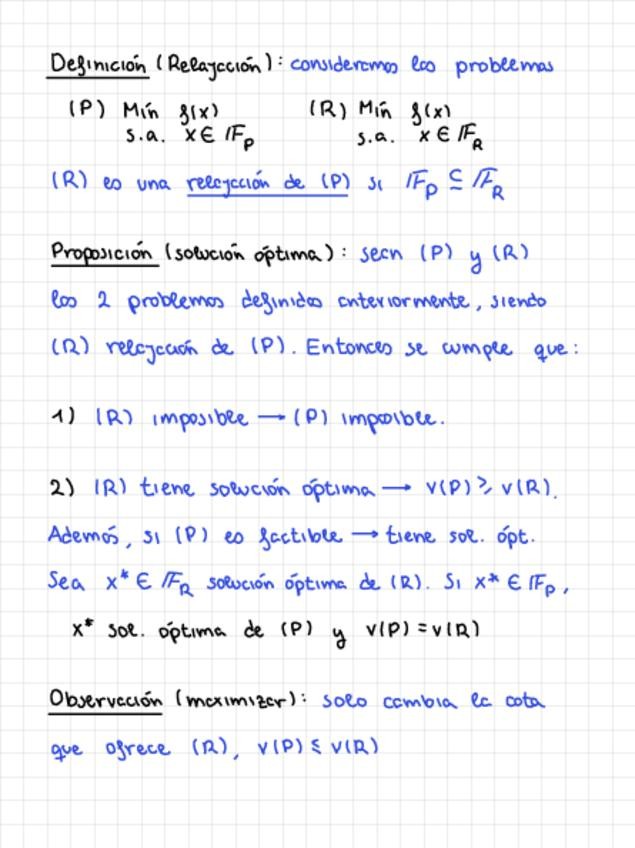 Definición (Relajacción): consideramos los problemas
(P) Mín f(x) (R) Mín f(x)
s.a. x ∈ F_P s.a. x ∈ F_R
(R) es una relajación de (P) si F_P ⊆ F_R
Proposición (solución óptima): sean (P) y (R)
los 2 problemas definidos anteriormente, siendo
(R) relajación de (P). Entonces se cumple que:
1) (R) imposible → (P) imposible.
2) (R) tiene solución óptima → v(P) ≥ v(R).
Además, si (P) es factible → tiene sol. ópt.
Sea x* ∈ F_R solución óptima de (R). Si x* ∈ F_P,
x* sol. óptima de (P) y v(P) = v(R)
Observación (maximizar): solo cambia la cota
que ofrece (R), v(P) ≤ v(R)